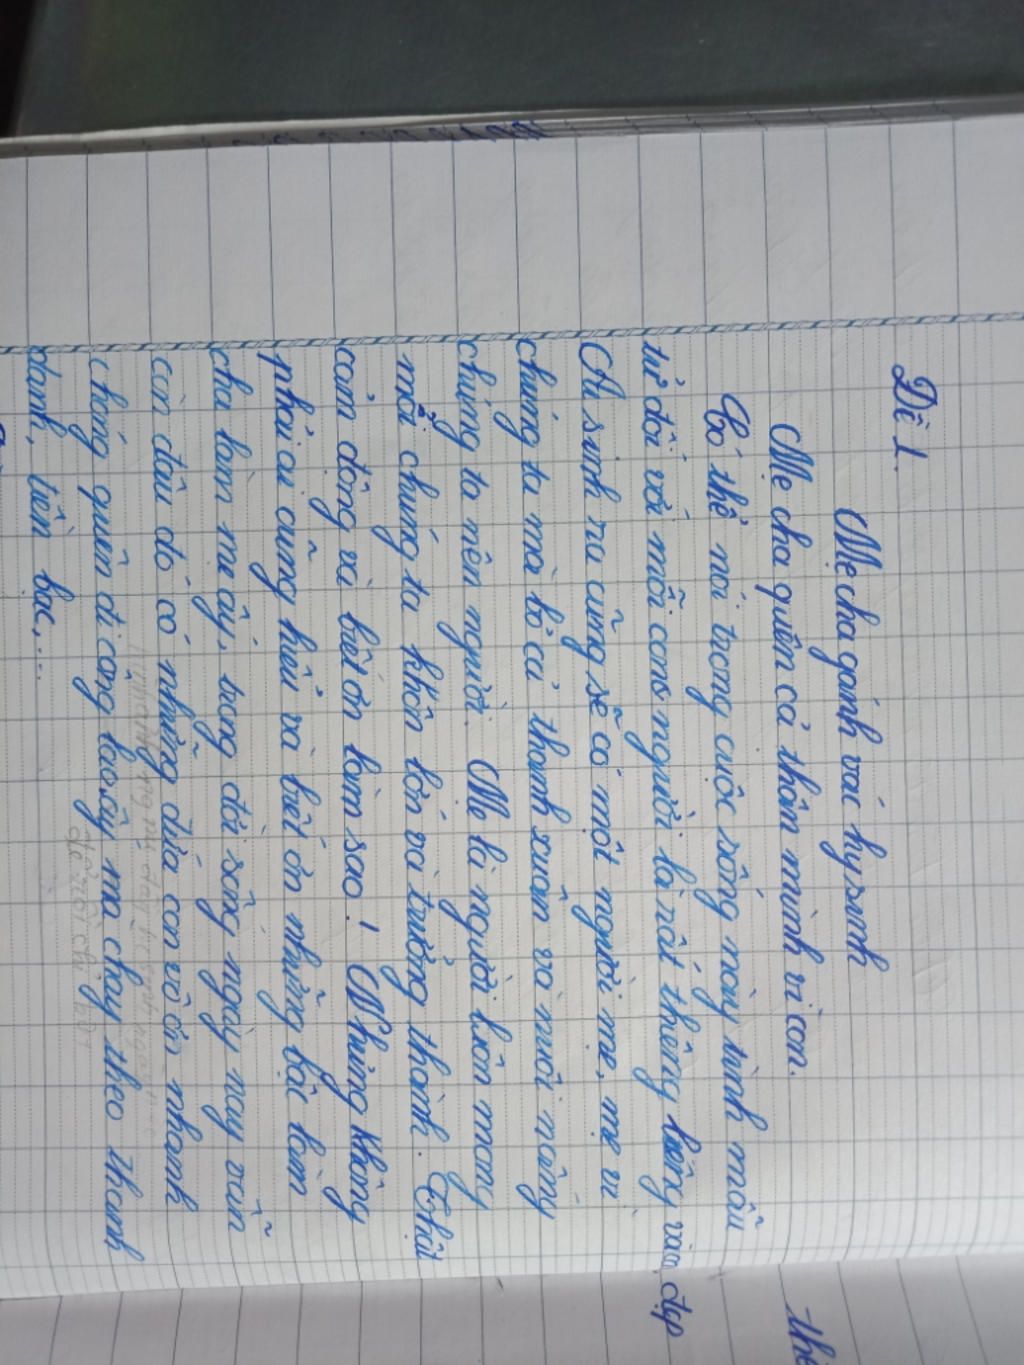 Đề 1.
Mẹ cha gánh vác hy sinh
Mẹ cha quên cả thân mình vì con.
Có thể nói trong cuộc sống này tình mẫu
tử đối với mỗi con người là rất thiêng liêng và đẹp
Ai sinh ra cũng sẽ có một người mẹ, mẹ vì
chúng ta mà bỏ cả thanh xuân và nuôi nấng
chúng ta nên người. Mẹ là người luôn mong
mỗi chúng ta khôn lớn và trưởng thành. Thật
cảm động và biết ơn làm sao! Nhưng không
phải ai cũng hiểu và biết ơn những bậc làm
cha làm mẹ ấy, trong đời sống ngày nay vẫn
còn đâu đó có những đứa con vô ơn nhanh
chóng quên đi công lao ấy mà chạy theo thanh
danh, tiền bạc,...
thê